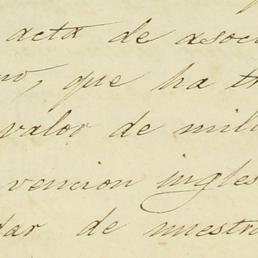 acta de asoci
no, que ha tr
valor de mil
vencion ingles
dar de nuestr